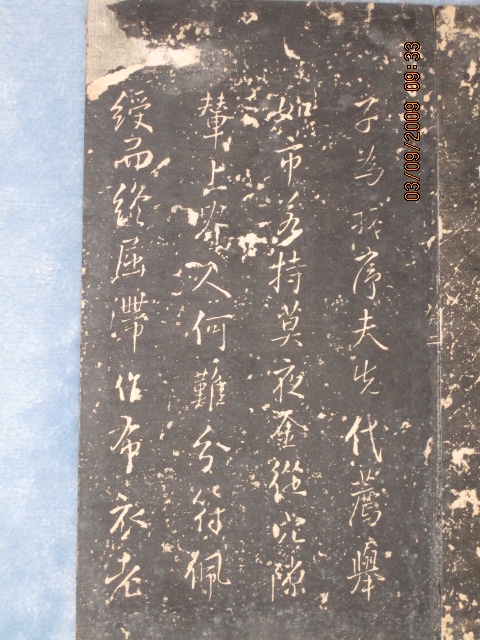 子為序夫先代薦舉
如市各持莫夜金從穴隙
輦上人何難分符佩
綬而終屈滯作布衣老
03/09/2009 09:33